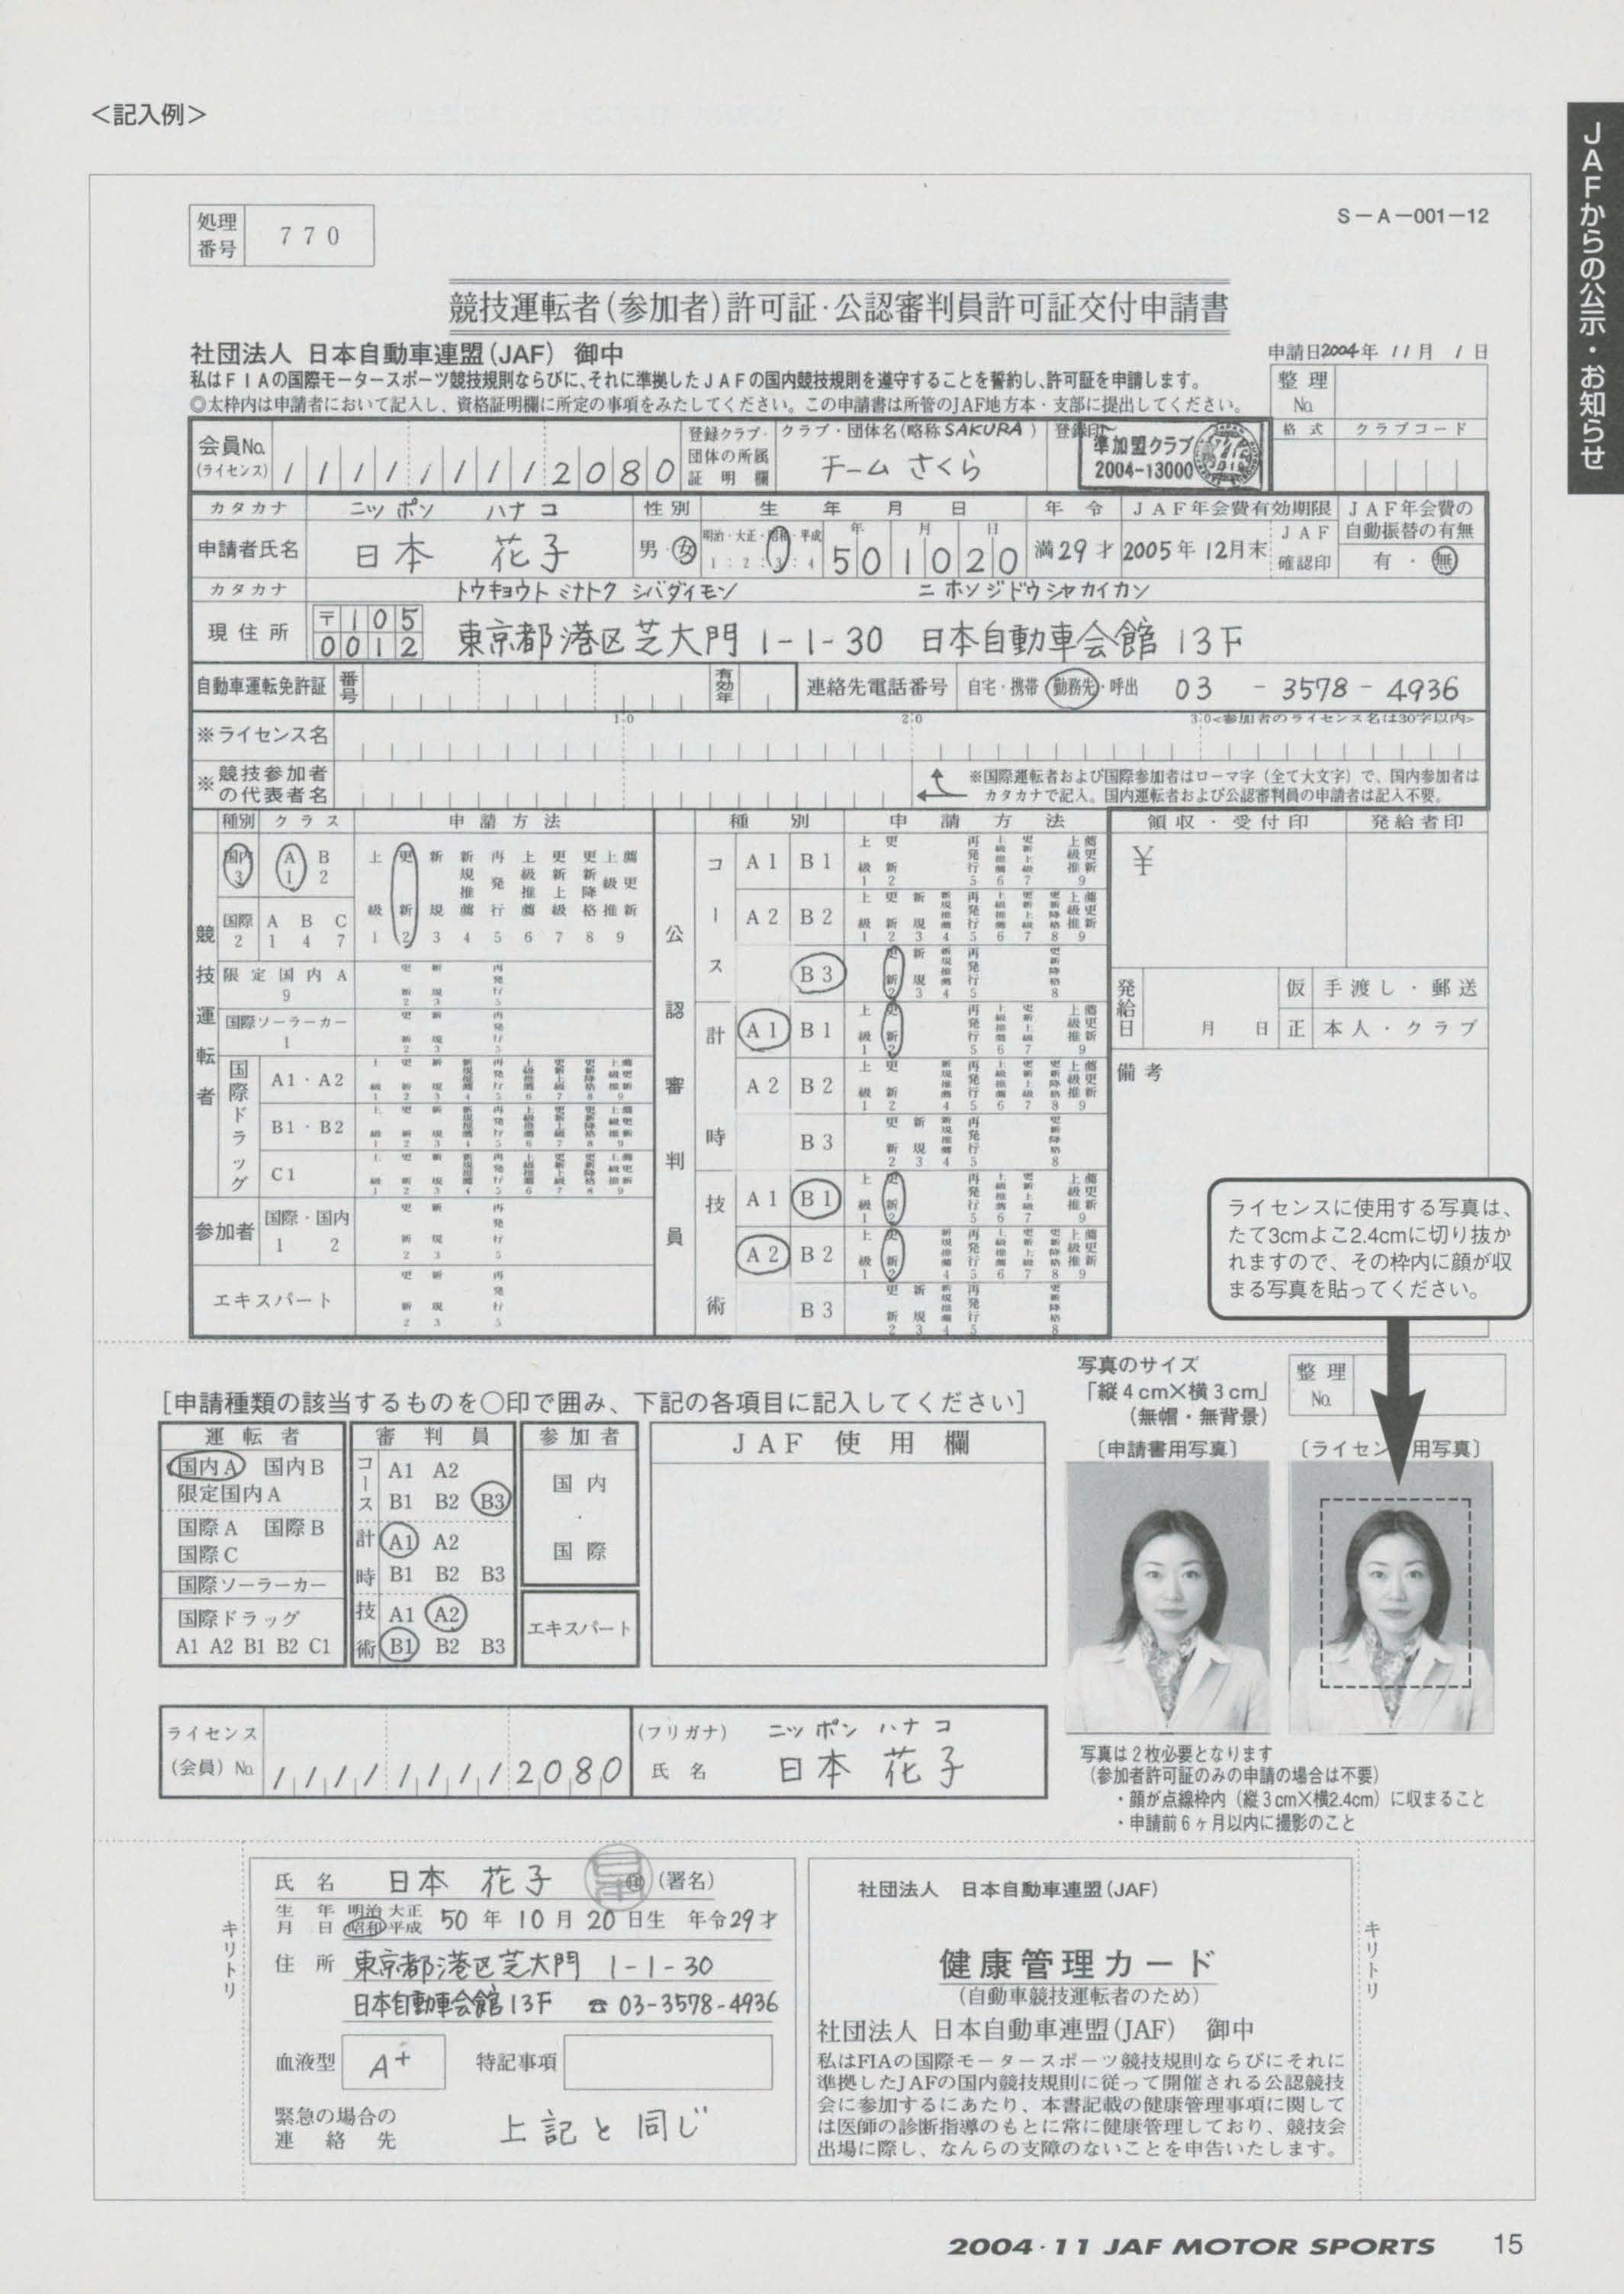 <記入例>
JAFからの公示・お知らせ
処理番号 770
S-A-001-12
競技運転者(参加者)許可証・公認審判員許可証交付申請書
社団法人 日本自動車連盟(JAF) 御中
申請日2004年 11月 1日
私はFIAの国際モータースポーツ競技規則ならびに、それに準拠したJAFの国内競技規則を遵守することを誓約し、許可証を申請します。
◎太枠内は申請者において記入し、資格証明欄に所定の事項をみたしてください。この申請書は所管のJAF地方本・支部に提出してください。
整理No.
格式 クラブコード
会員No.(ライセンス) / / / / / / / / 2 0 8 0
登録クラブ・団体の所属証明欄
クラブ・団体名(略称SAKURA) 登録印
チーム さくら
準加盟クラブ
2004-13000
カタカナ ニッポン ハナコ 性別 生年月日 年令 JAF年会費有効期限 JAF年会費の自動振替の有無
申請者氏名 日本 花子 男・女 明治・大正・昭和・平成 1:2:3:4 50年10月20日 満29才 2005年12月末 JAF確認印 有・無
カタカナ トウキョウト ミナトク シバダイモン ニホンジドウシャカイカン
現住所 〒105 0012 東京都港区芝大門 1-1-30 日本自動車会館 13F
自動車運転免許証 番号 有効年 連絡先電話番号 自宅・携帯・勤務先・呼出 03 - 3578 - 4936
※ライセンス名 10 20 30<参加者のライセンス名は30字以内>
※競技参加者の代表者名
※国際運転者および国際参加者はローマ字(全て大文字)で、国内参加者は
カタカナで記入。国内運転者および公認審判員の申請者は記入不要。
種別 クラス 申請方法
競技運転者
国内 3 A 1 B 2
上級 1 更新 2 新規 3 新規推薦 4 再発行 5 上級推薦 6 更新上級 7 更新降格 8 上級推薦更新 9
国際 2 A 1 B 4 C 7
限定国内A 9 更新 2 新規 3 再発行 5
国際ソーラーカー 1 更新 2 新規 3 再発行 5
国際ドラッグ
A1・A2 上級 1 更新 2 新規 3 新規推薦 4 再発行 5 上級推薦 6 更新上級 7 更新降格 8 上級推薦更新 9
B1・B2 上級 1 更新 2 新規 3 新規推薦 4 再発行 5 上級推薦 6 更新上級 7 更新降格 8 上級推薦更新 9
C1 上級 1 更新 2 新規 3 新規推薦 4 再発行 5 上級推薦 6 更新上級 7 更新降格 8 上級推薦更新 9
参加者 国際・国内 1 2 更新 2 新規 3 再発行 5
エキスパート 更新 2 新規 3 再発行 5
公認審判員
種別 申請方法
コース
A1 B1 上級 1 更新 2 再発行 5 上級推薦 6 更新上級 7 上級推薦更新 9
A2 B2 上級 1 更新 2 新規 3 新規推薦 4 再発行 5 上級推薦 6 更新上級 7 更新降格 8 上級推薦更新 9
B3 更新 2 新規 3 新規推薦 4 再発行 5 更新降格 8
計時
A1 B1 上級 1 更新 2 再発行 5 上級推薦 6 更新上級 7 上級推薦更新 9
A2 B2 上級 1 更新 2 新規推薦 4 再発行 5 上級推薦 6 更新上級 7 更新降格 8 上級推薦更新 9
B3 更新 2 新規 3 新規推薦 4 再発行 5 更新降格 8
技術
A1 B1 上級 1 更新 2 再発行 5 上級推薦 6 更新上級 7 上級推薦更新 9
A2 B2 上級 1 更新 2 新規推薦 4 再発行 5 上級推薦 6 更新上級 7 更新降格 8 上級推薦更新 9
B3 更新 2 新規 3 新規推薦 4 再発行 5 更新降格 8
領収・受付印 発給者印
¥
発給日 月 日
仮 手渡し・郵送
正 本人・クラブ
備考
ライセンスに使用する写真は、
たて3cmよこ2.4cmに切り抜か
れますので、その枠内に顔が収
まる写真を貼ってください。
[申請種類の該当するものを○印で囲み、下記の各項目に記入してください]
運転者
国内A 国内B
限定国内A
国際A 国際B
国際C
国際ソーラーカー
国際ドラッグ
A1 A2 B1 B2 C1
審判員
コース A1 A2
B1 B2 B3
計時 A1 A2
B1 B2 B3
技術 A1 A2
B1 B2 B3
参加者
国内
・
国際
エキスパート
JAF使用欄
写真のサイズ
「縦4cm×横3cm」
(無帽・無背景)
整理No.
〔申請書用写真〕 〔ライセン 用写真〕
ライセンス(会員)No. / / / / / / / / 2 0 8 0
(フリガナ) ニッポン ハナコ
氏名 日本 花子
写真は2枚必要となります
(参加者許可証のみの申請の場合は不要)
・顔が点線枠内(縦3cm×横2.4cm)に収まること
・申請前6ヶ月以内に撮影のこと
キリトリ
氏名 日本 花子 ㊞(署名)
生年月日 明治 大正 昭和 平成 50年10月20日生 年令29才
住所 東京都港区芝大門 1-1-30
日本自動車会館 13F ☎ 03-3578-4936
血液型 A+ 特記事項
緊急の場合の連絡先 上記と同じ
社団法人 日本自動車連盟(JAF)
健康管理カード
(自動車競技運転者のため)
社団法人 日本自動車連盟(JAF) 御中
私はFIAの国際モータースポーツ競技規則ならびにそれに
準拠したJAFの国内競技規則に従って開催される公認競技
会に参加するにあたり、本書記載の健康管理事項に関して
は医師の診断指導のもとに常に健康管理しており、競技会
出場に際し、なんらの支障のないことを申告いたします。
キリトリ
2004・11 JAF MOTOR SPORTS 15